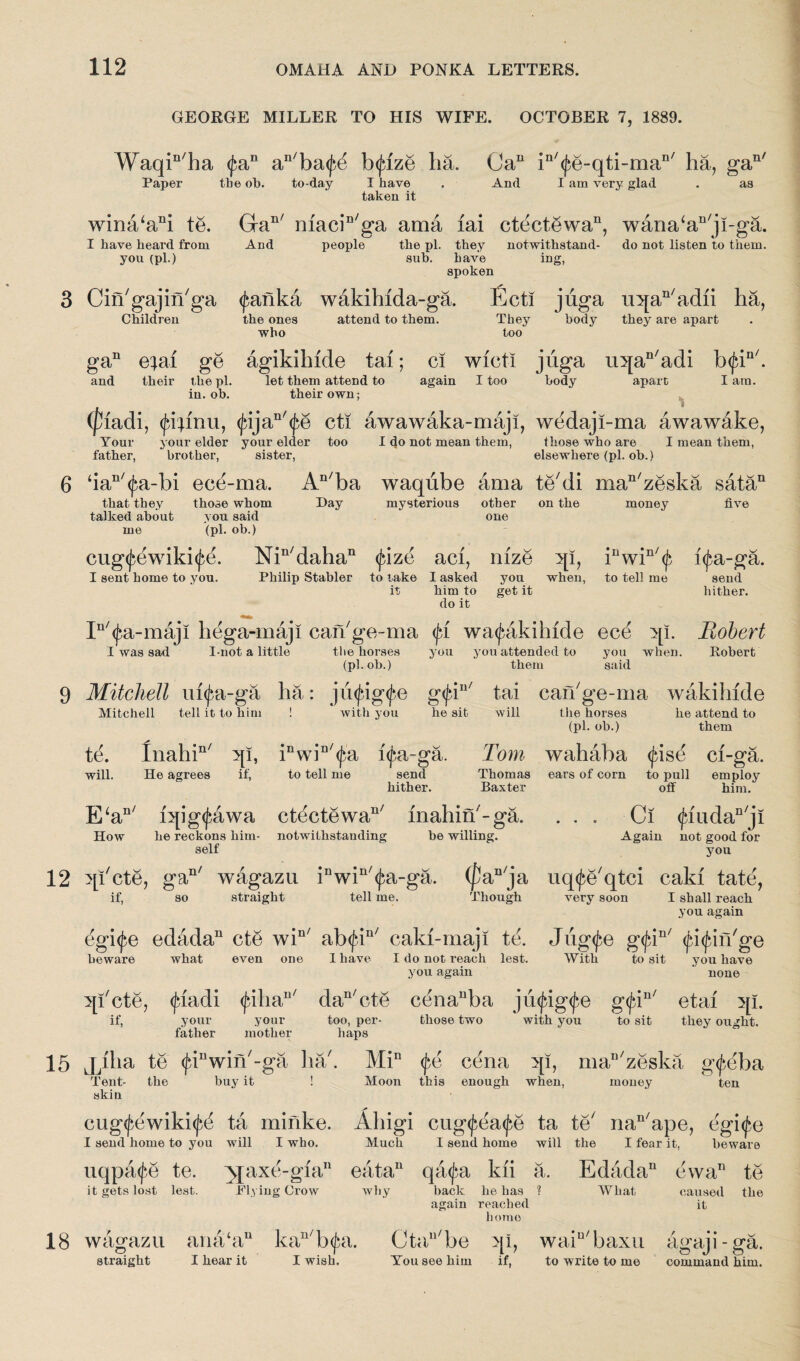 112 OMAHA AND PONKA LETTERS.
GEORGE MILLER TO HIS WIFE. OCTOBER 7, 1889.
Waqiⁿ′ha ȼaⁿ aⁿ′baȼé bȼízĕ hă. Caⁿ iⁿ′ȼĕ-qti-maⁿ′ hă, gaⁿ′
Paper the ob. to-day I have . And I am very glad . as
taken it
winá‘aⁿi tĕ. Gaⁿ′ níaciⁿ′ga amá íai ctéctĕwaⁿ, wána‘aⁿ′jĭ-gă.
I have heard from And people the pl. they notwithstand- do not listen to them.
you (pl.) sub. have ing,
spoken
3 Ciñ′gajiñ′ga ȼañká wákihída-gă. Éctĭ júga uʞaⁿ′adíi hă,
Children the ones attend to them. They body they are apart .
who too
gaⁿ eʇaí gĕ ágikihíde taí; cĭ wíctĭ júga uʞaⁿ′adi bȼiⁿ′.
and their the pl. let them attend to again I too body apart I am.
in. ob. their own;
Ȼíadi, ȼiʇínu, ȼijaⁿ′ȼĕ ctĭ áwawáka-májĭ, wédajĭ-ma áwawáke,
Your your elder your elder too I do not mean them, those who are I mean them,
father, brother, sister, elsewhere (pl. ob.)
6 ‘iaⁿ′ȼa-bi ecé-ma. Aⁿ′ba waqúbe áma tĕ′di maⁿ′zĕskă sátăⁿ
that they those whom Day mysterious other on the money five
talked about you said one
me (pl. ob.)
cugȼéwikiȼé. Niⁿ′dahaⁿ ȼizé ací, nízĕ ʞĭ, iⁿwiⁿ′ȼ íȼa-gă.
I sent home to you. Philip Stabler to take I asked you when, to tell me send
it him to get it hither.
do it
Iⁿ′ȼa-májĭ héga-májĭ cañ′ge-ma ȼí waȼákihíde ecé ʞĭ. Robert
I was sad I-not a little the horses you you attended to you when. Robert
(pl. ob.) them said
9 Mitchell uíȼa-gă hă: júȼigȼe gȼiⁿ′ tai cañ′ge-ma wákihíde
Mitchell tell it to him ! with you he sit will the horses he attend to
(pl. ob.) them
té. Ínahiⁿ′ ʞĭ, iⁿwiⁿ′ȼa íȼa-gă. Tom wahába ȼisé cí-gă.
will. He agrees if, to tell me send Thomas ears of corn to pull employ
hither. Baxter off him.
E‘aⁿ′ íʞigȼáwa ctéctĕwaⁿ′ ínahiñ′-gă. . . . Cĭ ȼíudaⁿ′jĭ
How he reckons him- notwithstanding be willing. Again not good for
self you
12 ʞĭ′ctĕ, gaⁿ′ wágazu iⁿwiⁿ′ȼa-gă. Ȼaⁿ′ja uqȼĕ′qtci cakí taté,
if, so straight tell me. Though very soon I shall reach
you again
égiȼe edádaⁿ ctĕ wiⁿ′ abȼiⁿ′ cakí-majĭ té. Júgȼe gȼiⁿ′ ȼiȼiñ′ge
beware what even one I have I do not reach lest. With to sit you have
you again none
ʞĭ′ctĕ, ȼíadi ȼihaⁿ′ daⁿ′ctĕ cénaⁿba júȼigȼe gȼiⁿ′ etaí ʞĭ.
if, your your too, per- those two with you to sit they ought.
father mother haps
15 ʇíha tĕ ȼiⁿwiñ′-gă hă′. Miⁿ ȼé céna ʞĭ, maⁿ′zĕskă gȼéba
Tent- the buy it ! Moon this enough when, money ten
skin
cugȼéwikiȼé tá miñke. Áhigi cugȼéaȼĕ ta tĕ′ naⁿ′ape, égiȼe
I send home to you will I who. Much I send home will the I fear it, beware
uqpáȼĕ te. ʞaxé-gíaⁿ eátaⁿ qáȼa kíi ă. Edádaⁿ éwaⁿ tĕ
it gets lost lest. Flying Crow why back he has ? What caused the
again reached it
home
18 wágazu aná‘aⁿ kaⁿ′bȼa. Ctaⁿ′be ʞĭ, waiⁿ′baxu ágaji-gă.
straight I hear it I wish. You see him if, to write to me command him.